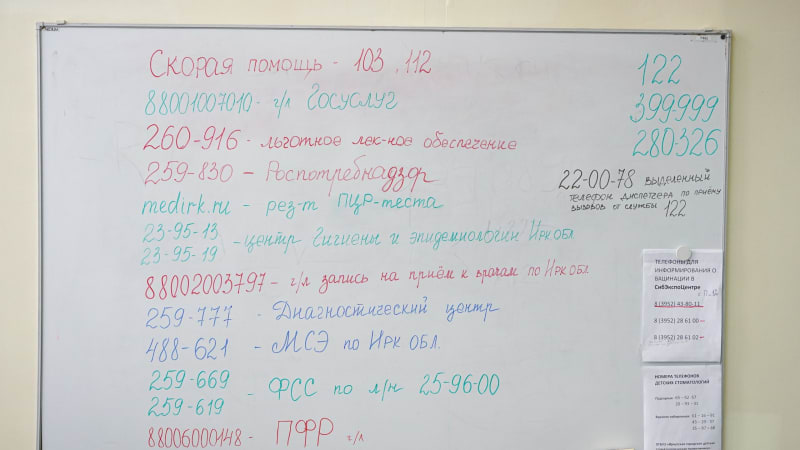 Скорая помощь - 103, 112
88001007010 - г/л Госуслуг
260-916 - льготное лек-ное обеспечение
259-830 - Роспотребнадзор
medirk.ru - рез-т ПЦР-теста
23-95-13
23-95-19 - центр Гигиены и эпидемиологии Ирк обл
88002003797 - г/л запись на приём к врачам по Ирк обл
259-777 - Диагностический центр
488-621 - МСЭ по Ирк обл.
259-669
259-619 - ФСС по л/н 25-96-00
88006000148 - ПФР г/л
122
399-999
280-326
22-00-78 выделенный
телефон диспетчера по приёму
вызовов от службы 122
ТЕЛЕФОНЫ ДЛЯ
ИНФОРМИРОВАНИЯ О
ВАЦИНАЦИИ В
СибЭкспоЦентре
8 (3952) 43-80-11
8 (3952) 28 61 00
8 (3952) 28 61 02
НОМЕРА ТЕЛЕФОНОВ
ДЕТСКИХ СТОМАТОЛОГИЙ